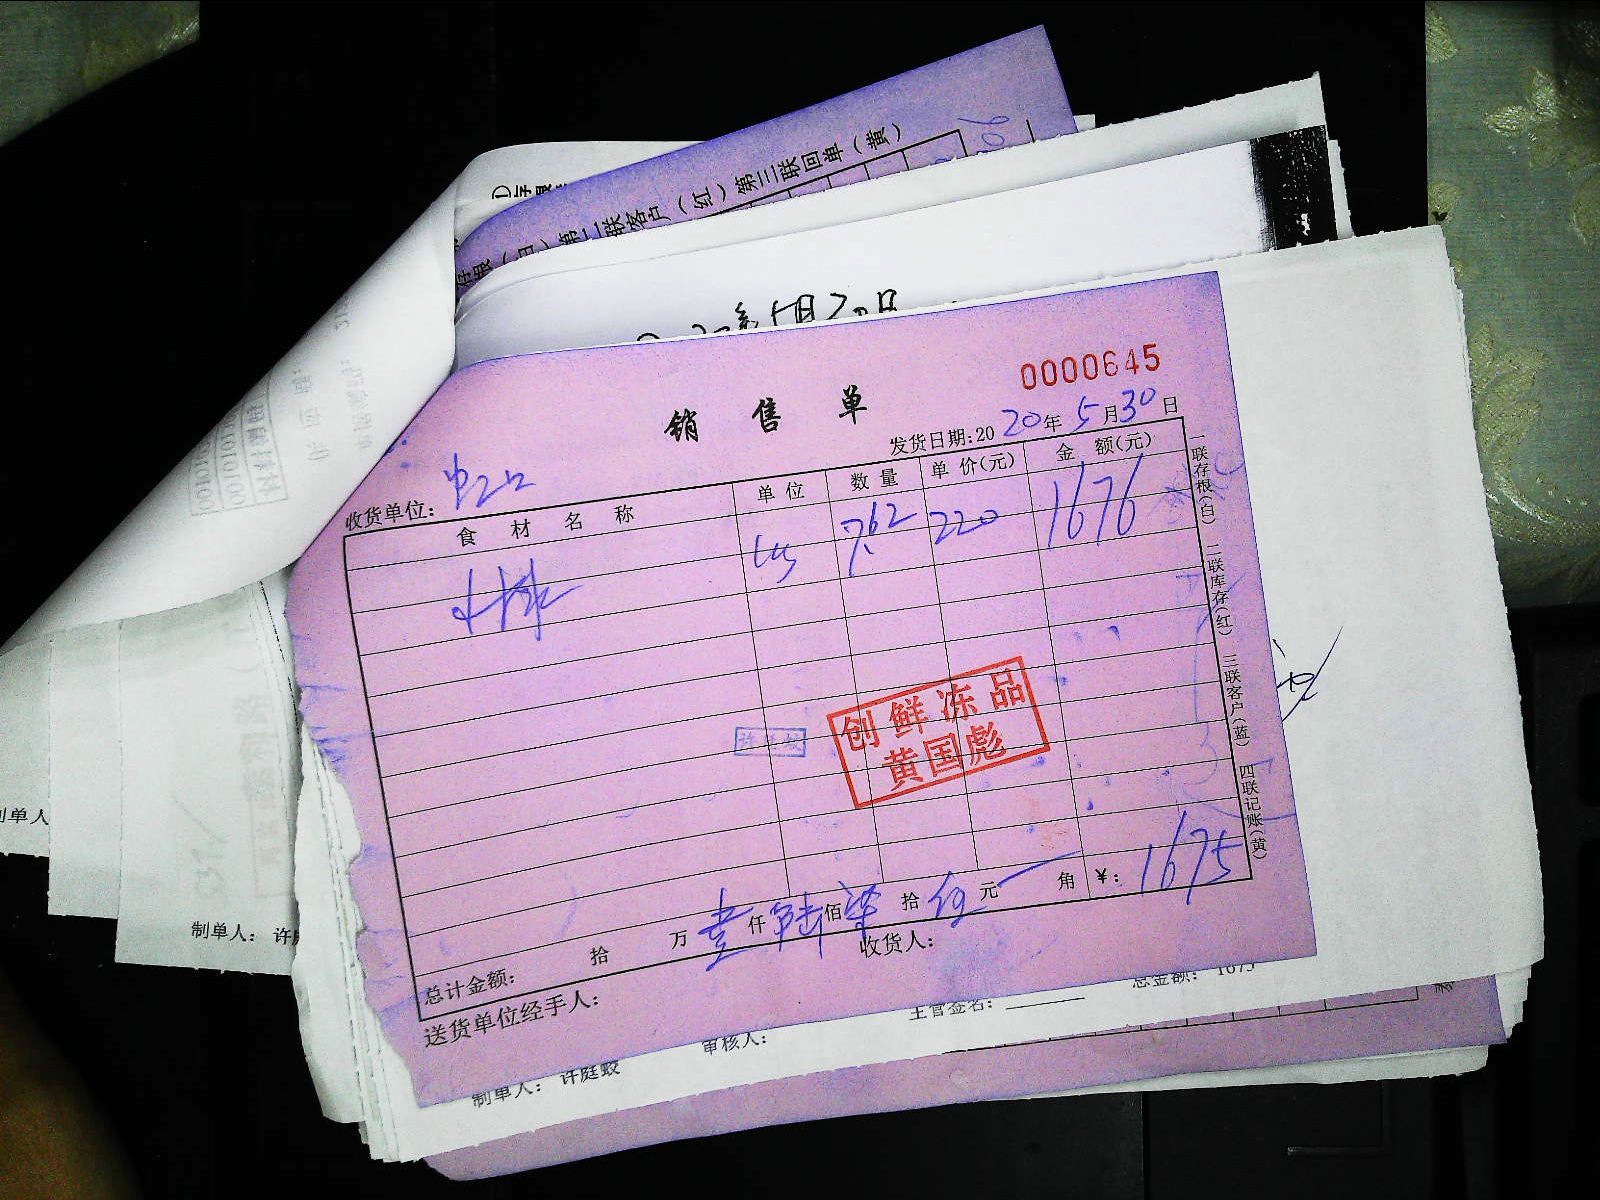 第二联客户(红)第三联回单(黄)
5月20日
0000645
销售单
发货日期:2020年5月30日
收货单位:
食材名称 单位 数量 单价(元) 金额(元)
7.62 220 1676
创鲜冻品
黄国彪
一联存根(白) 二联库存(红) 三联客户(蓝) 四联记账(黄)
总计金额: 拾 万 壹仟陆佰柒拾伍元 角 ¥: 1675
送货单位经手人: 收货人:
主管签名: 总金额: 1675
制单人: 许庭蛟 审核人:
制单人: 许
制单人